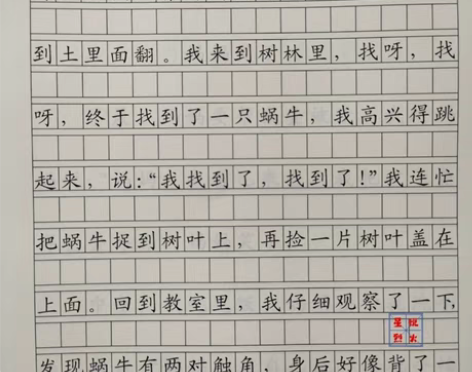 到土里面翻。我来到树林里，找呀，找
呀，终于找到了一只蜗牛，我高兴得跳
起来，说：“我找到了，找到了！”我连忙
把蜗牛捉到树叶上，再捡一片树叶盖在
上面。回到教室里，我仔细观察了一下，
发现蜗牛有两对触角，身后好像背了一